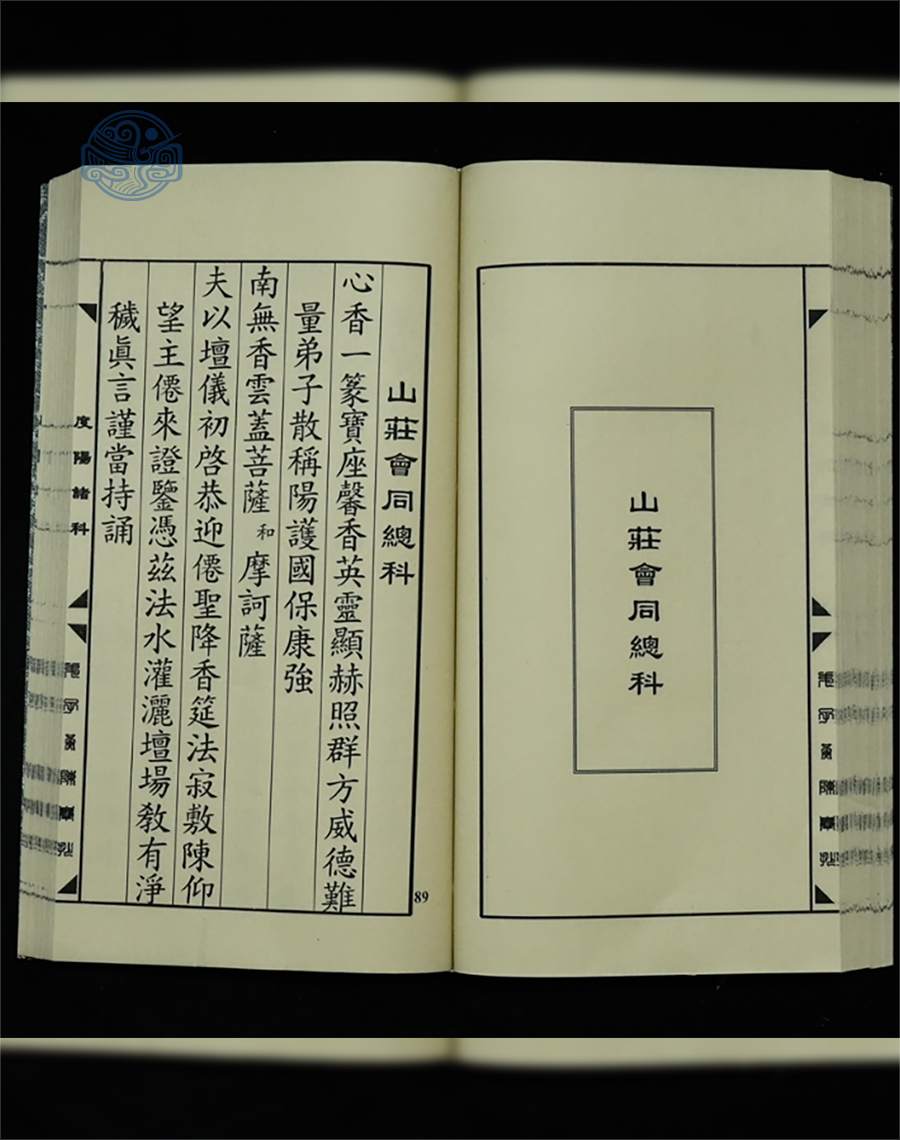 山莊會同總科
山莊會同總科
心香一篆寶座馨香英靈顯赫照群方威德難
量弟子散稱陽護國保康強
南無香雲蓋菩薩 和 摩訶薩
夫以壇儀初啓恭迎僊聖降香筵法寂敷陳仰
望主僊來證鑒憑茲法水灌灑壇場教有淨
穢眞言謹當持誦
度陽諸科
89